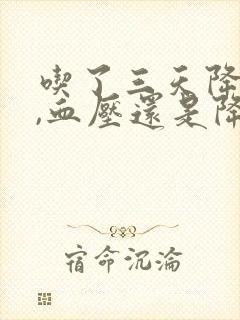 喫了三天降
,血壓還是降
宿命沉淪